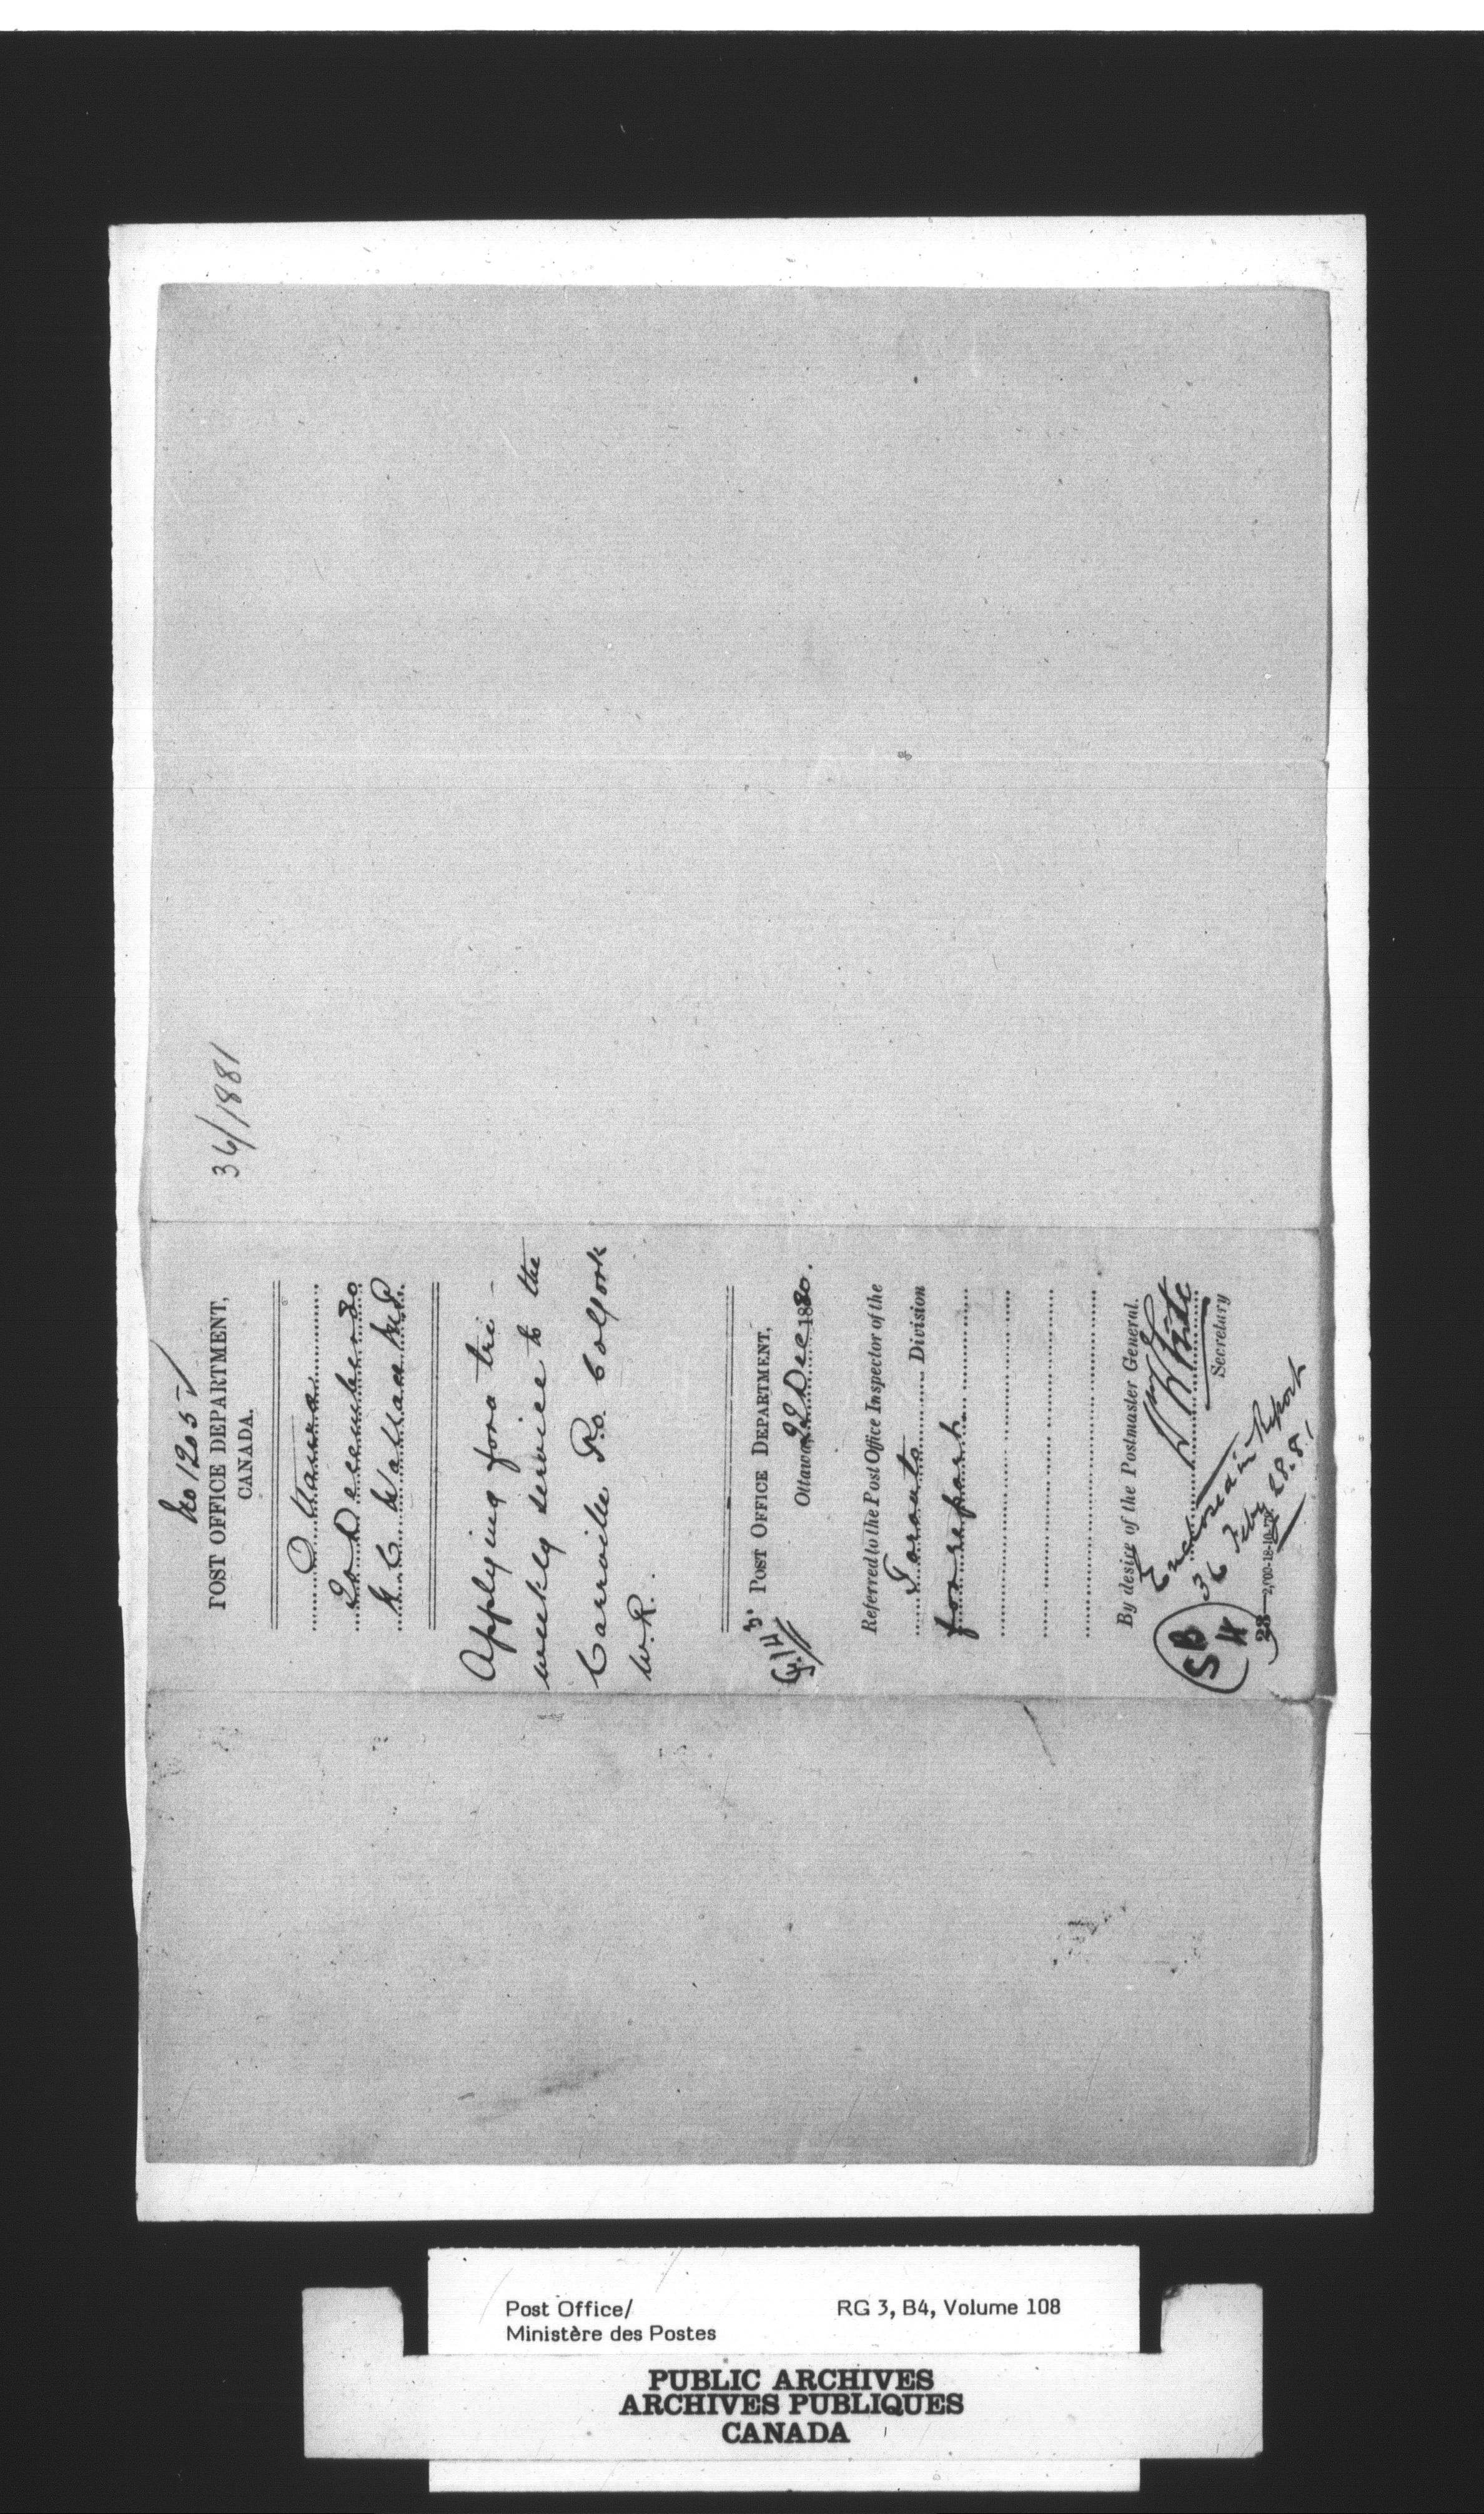 36/1881
No 1205
POST OFFICE DEPARTMENT,
CANADA.
Ottawa
20 December 80
N. C. Wallace M.P.
Applying for a tri-
weekly service to the
Carrville P.O. Co York
W.R.
POST OFFICE DEPARTMENT,
Ottawa, 22 Dec 1880.
Referred to the Post Office Inspector of the
Toronto Division
for report.
By desire of the Postmaster General.
Secretary
Enclosed in Report
36 Feby 28. 81
SB
4
28—2,000-18-10-79.
Post Office/
Ministère des Postes
RG 3, B4, Volume 108
PUBLIC ARCHIVES
ARCHIVES PUBLIQUES
CANADA